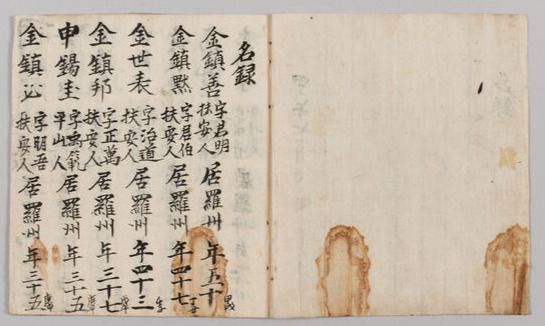 名録
金鎮善 字君明 扶安人 居羅州 年五十
金鎮黙 字君伯 扶安人 居羅州 年四十七
金世表 字治道 扶安人 居羅州 年四十三
金鎮邦 字正萬 扶安人 居羅州 年三十七
申錫圭 字禹範 平山人 居羅州 年三十五
金鎮必 字明吾 扶安人 居羅州 年三十五